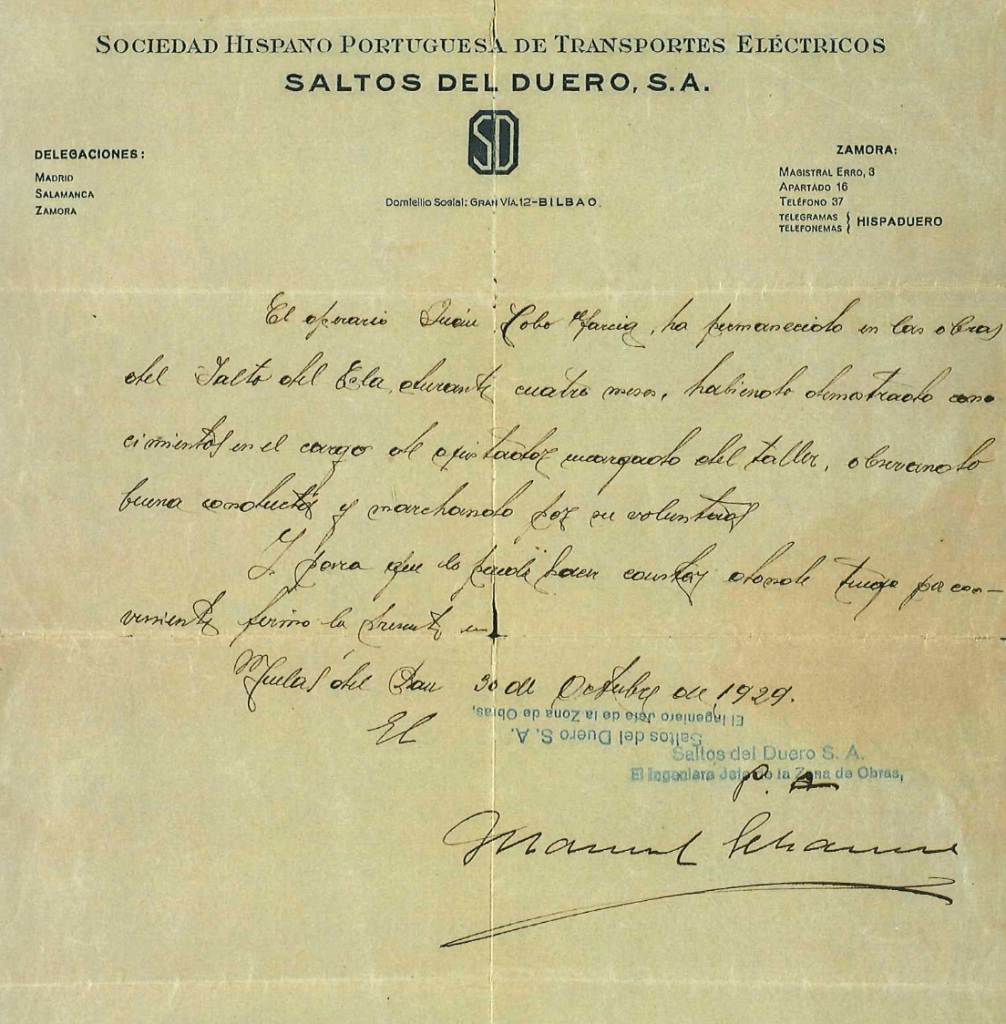 SOCIEDAD HISPANO PORTUGUESA DE TRANSPORTES ELÉCTRICOS
SALTOS DEL DUERO, S.A.
SD
DELEGACIONES:
MADRID
SALAMANCA
ZAMORA
Domicilio Social: GRAN VÍA.12-BILBAO.
ZAMORA:
MAGISTRAL ERRO, 3
APARTADO 16
TELÉFONO 37
TELEGRAMAS
TELEFONEMAS } HISPADUERO
El operario Juan Cobo Garcia, ha permanecido en las obras
del Salto del Esla, durante cuatro meses, habiendo demostrado cono-
cimientos en el cargo de ajustador encargado del taller, observando
buena conducta y marchando por su voluntad
Y para que lo pueda hacer constar donde tenga por con-
veniente firmo la presente en
Muelas del Pan 30 de Octubre de 1929.
El
El Ingeniero Jefe de la Zona de Obras,
Saltos del Duero S. A.
Saltos del Duero S. A.
El Ingeniero Jefe de la Zona de Obras,
P. A.
Manuel